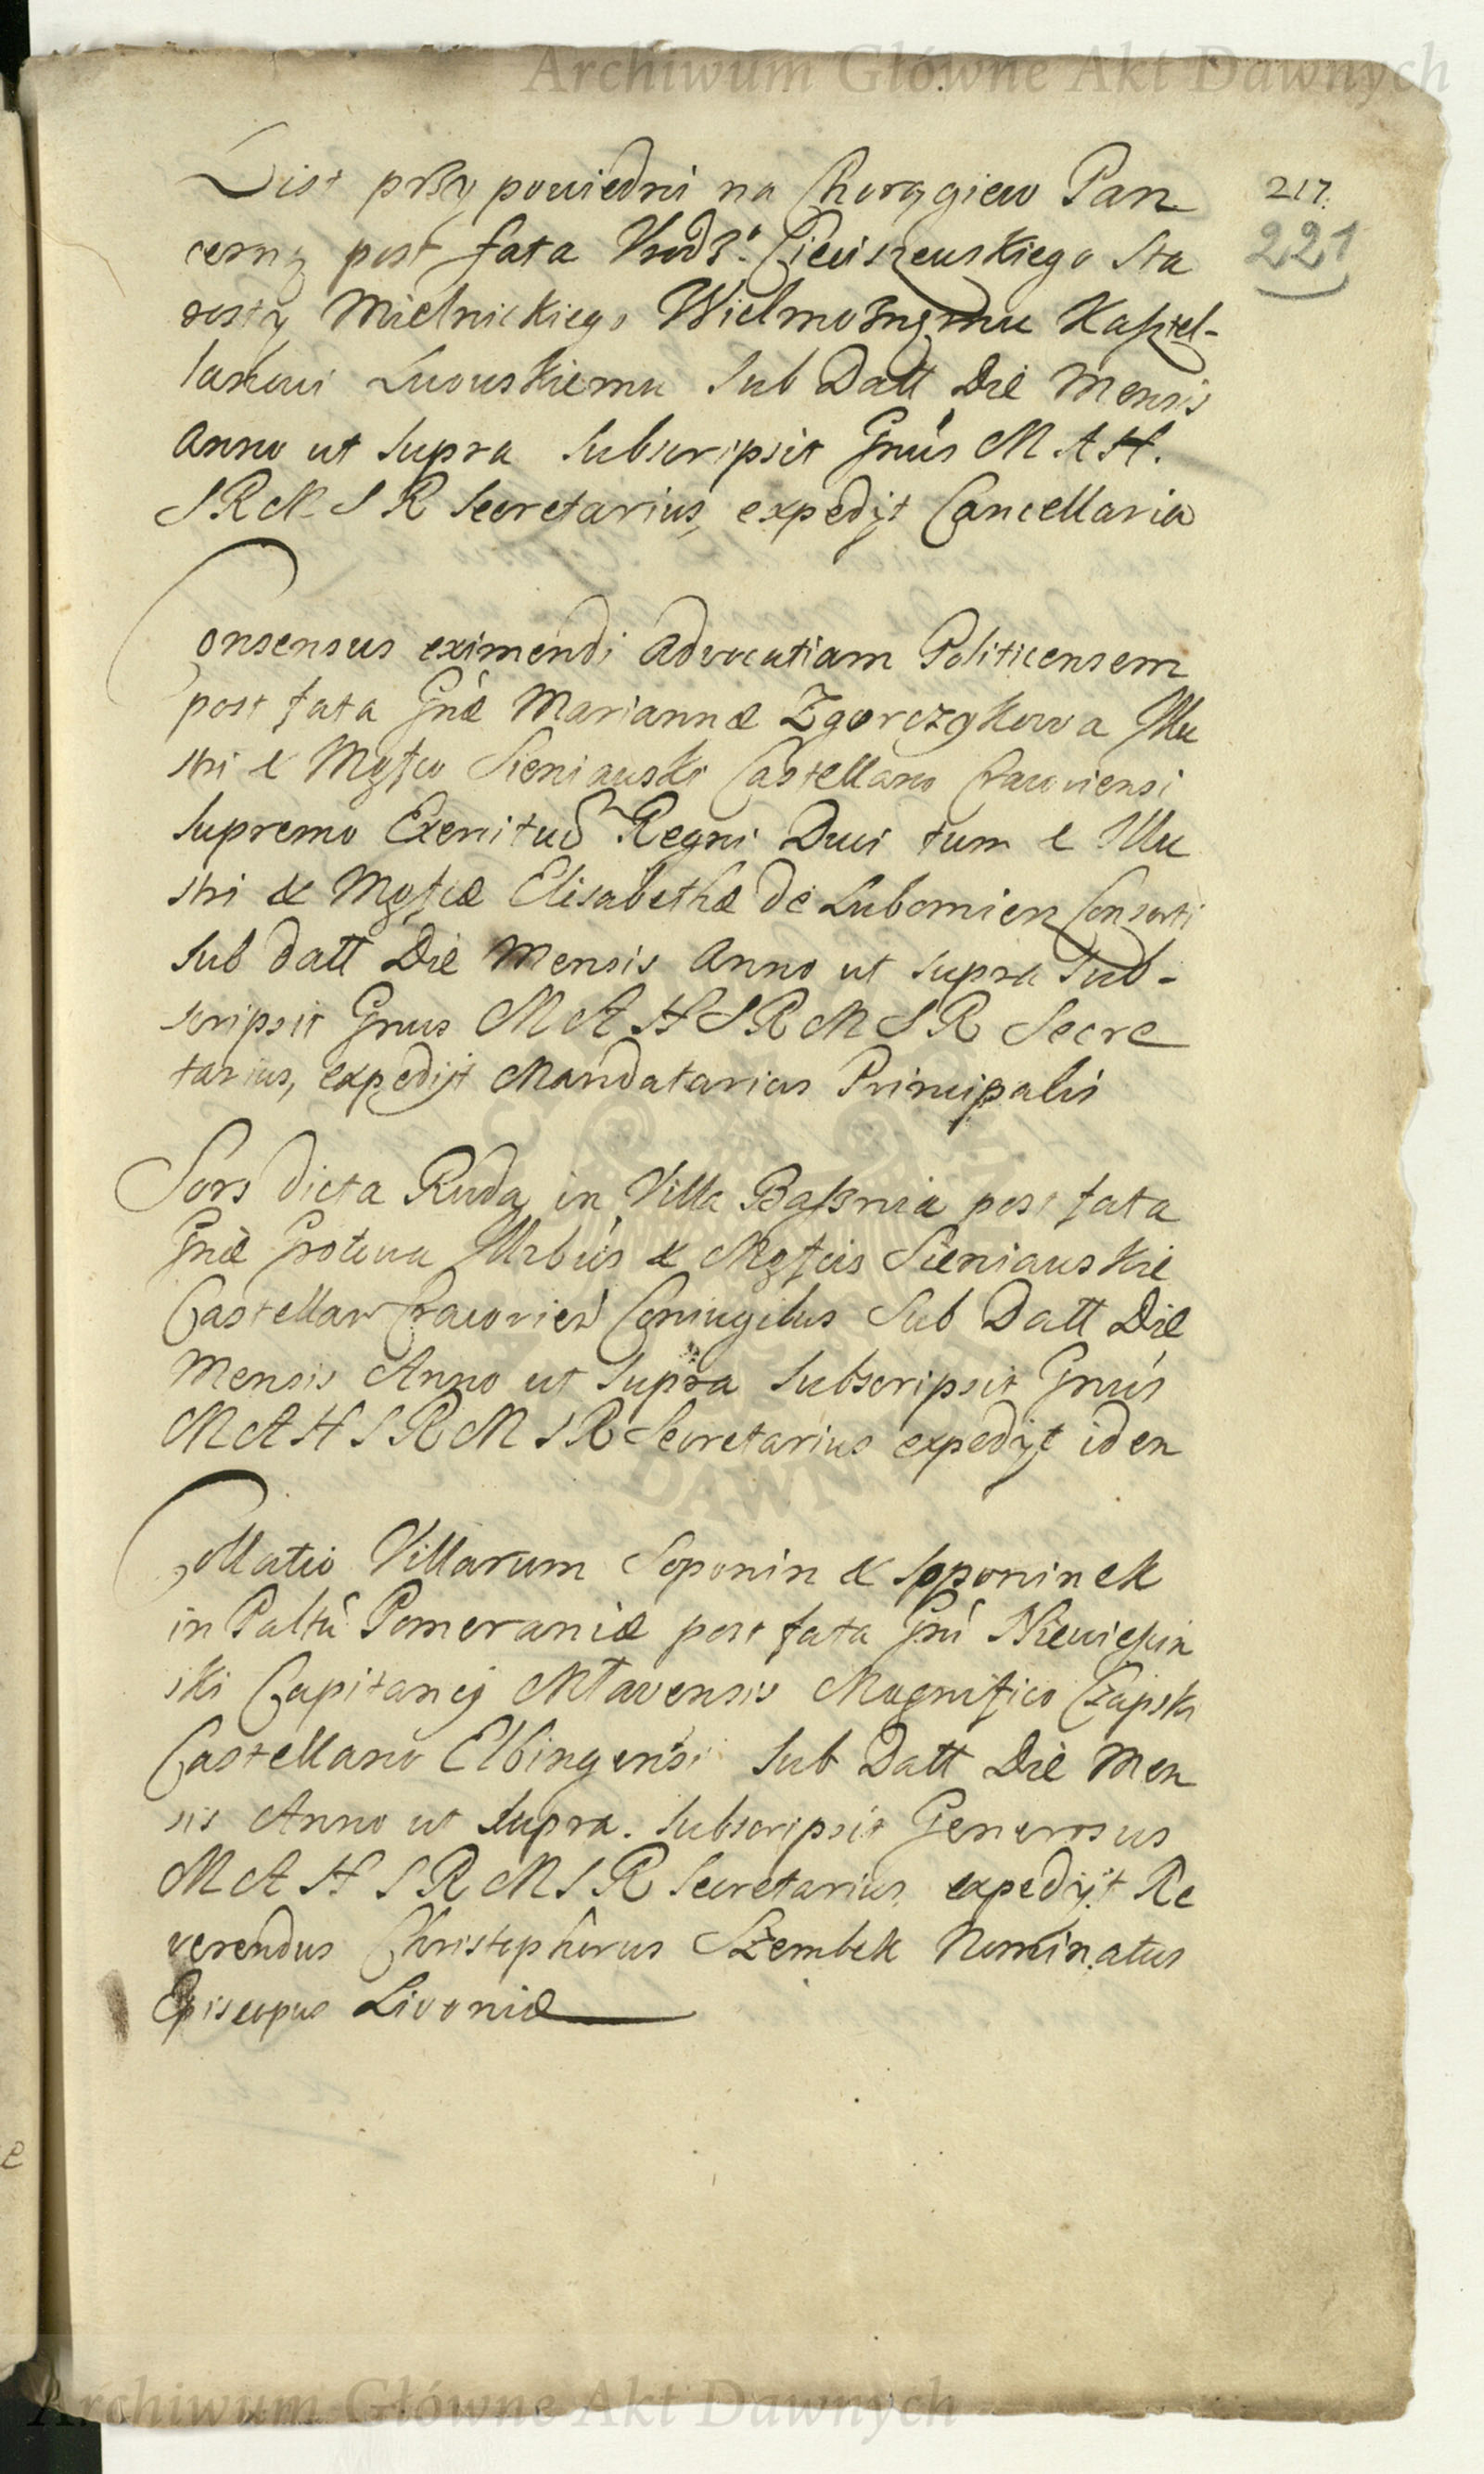 Archiwum Główne Akt Dawnych
217.
221
List przy powiedni na Chorągiew Pan
cerną post fata Vrodz° Cieciszewskiego Sta
rosty Mielnickiego Wielmożnemu Kasztel-
lanowi Lwowskiemu Sub Datt Die Mensis
Anno ut Supra Subscripsit Gnus M A H.
S R M S R Secretarius, expedyt Cancellaria
Consensus eximendi Advocatiam Politicensem
post fata Gnæ Mariannæ Zgorczykowa Illu
stri & Mgfco Sieniawski Castellano Cracoviensi
Supremo Exercituũ Regni Duci tum & Illu
stri & Mgfcæ Elisabethæ de Lubomierz Consorti
Sub datt Die Mensis Anno ut Supra Sub-
scripsit Gnus M A H S R M S R Secre
tarius, expedijt Mandatarius Principalis
Sors dicta Ruda in Villa Baſznia post fata
Gnæ Grotowa Illrbus & Mgfcis Sieniawskie
Castellan Cracovien Coniugibus Sub Datt Die
Mensis Anno ut Supra Subscripsit Gnus
M A H S R M S R Secretarius expedyt idem
Collatio Villarum Soponin & Soponinek
in Paltu Pomeraniæ post fata Gni Niewieſcin
ski Capitanej Młavensis Magnifico Czapski
Castellano Elbingensi Sub Datt Die Men
sis Anno ut Supra. Subscripsit Generosus
M A H S R M S R Secretarius expedijt Re
verendus Christophorus Szembek Nominatus
Episcopus Livoniæ
Archiwum Główne Akt Dawnych